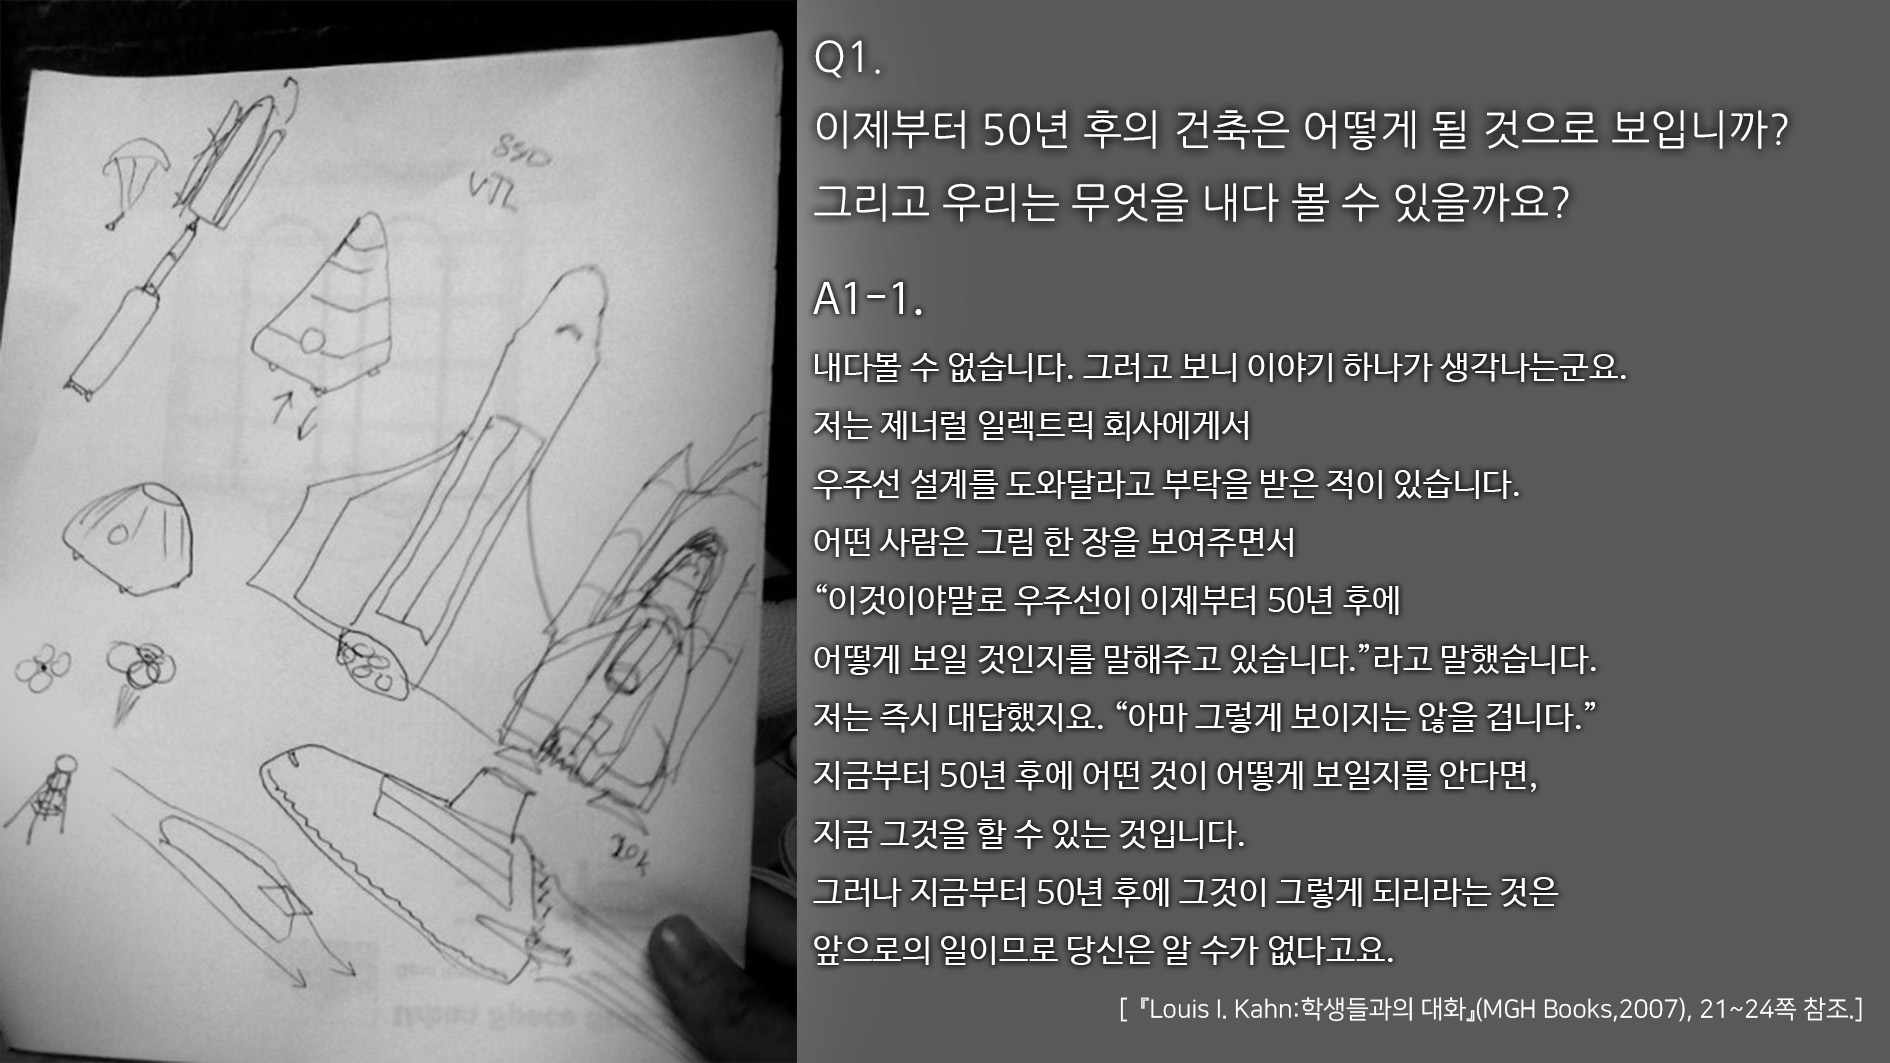 SSO
VTL
Q1.
이제부터 50년 후의 건축은 어떻게 될 것으로 보입니까?
그리고 우리는 무엇을 내다 볼 수 있을까요?
A1-1.
내다볼 수 없습니다. 그러고 보니 이야기 하나가 생각나는군요.
저는 제너럴 일렉트릭 회사에게서
우주선 설계를 도와달라고 부탁을 받은 적이 있습니다.
어떤 사람은 그림 한 장을 보여주면서
“이것이야말로 우주선이 이제부터 50년 후에
어떻게 보일 것인지를 말해주고 있습니다.”라고 말했습니다.
저는 즉시 대답했지요. “아마 그렇게 보이지는 않을 겁니다.”
지금부터 50년 후에 어떤 것이 어떻게 보일지를 안다면,
지금 그것을 할 수 있는 것입니다.
그러나 지금부터 50년 후에 그것이 그렇게 되리라는 것은
앞으로의 일이므로 당신은 알 수가 없다고요.
[『Louis I. Kahn:학생들과의 대화』(MGH Books,2007), 21~24쪽 참조.]
Urban Space